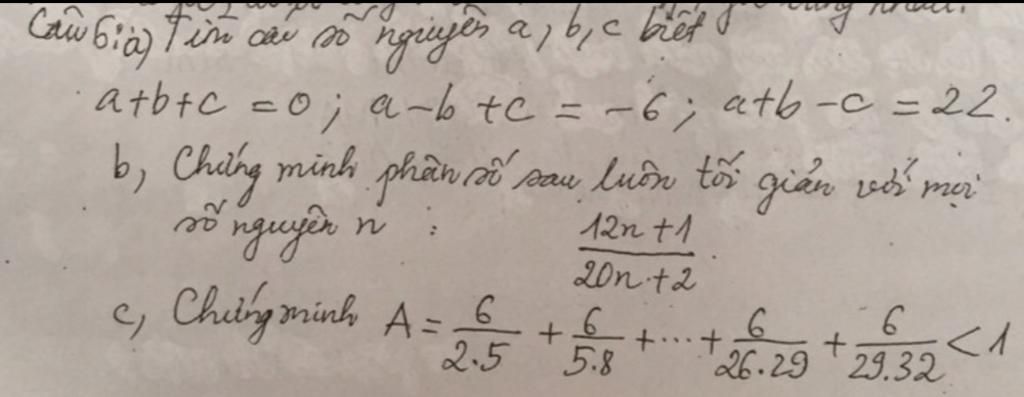 Câu 6: a) Tìm các số nguyên a, b, c biết
a+b+c = 0; a-b+c = -6; a+b-c = 22.
b, Chứng minh phân số sau luôn tối giản với mọi
số nguyên n : \frac{12n+1}{20n+2}
c, Chứng minh A = \frac{6}{2.5} + \frac{6}{5.8} + ... + \frac{6}{26.29} + \frac{6}{29.32} < 1